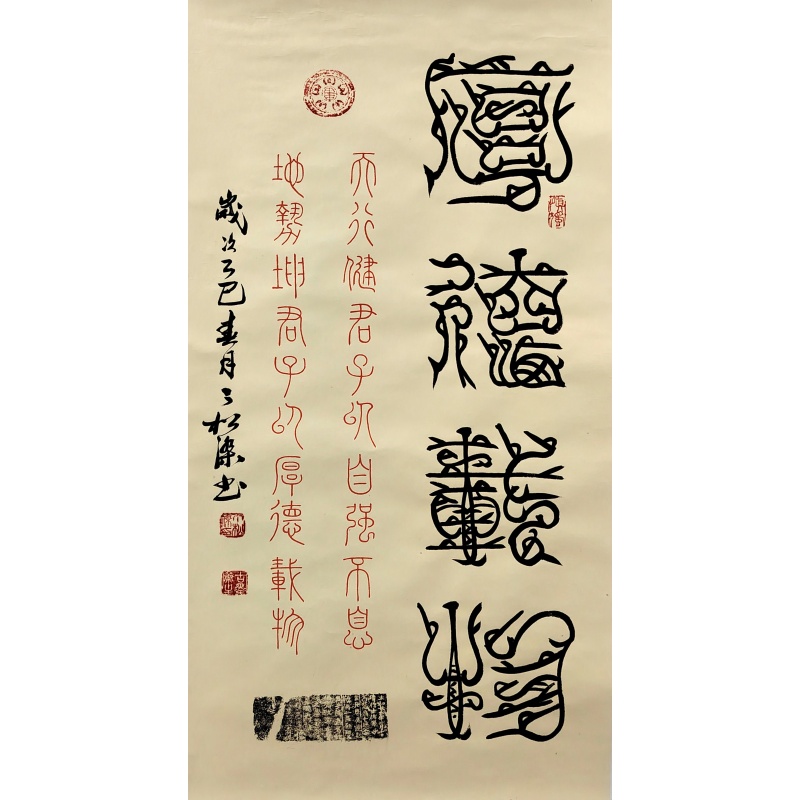 厚德載物
天行健君子以自强不息
地勢坤君子以厚德載物
歲次乙巳春月之松濂书